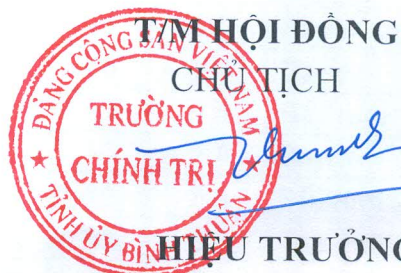 T/M HỘI ĐỒNG
CHỦ TỊCH
ĐẢNG CỘNG SẢN VIỆT NAM
TRƯỜNG
CHÍNH TRỊ
TỈNH ỦY BÌNH THUẬN
HIỆU TRƯỞNG